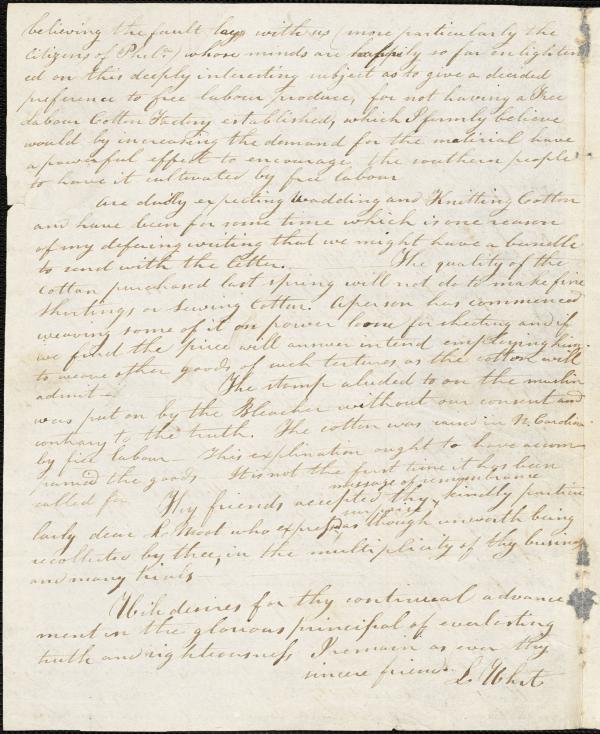 believing the fault lays with us (more particularly the
Citizens of Phila) whose minds are happily so far enlighten
ed on this deeply interesting subject as to give a decided
preference to free labour produce, for not having a Free
Labour Cotton Factory established, which I firmly believe
would by increasing the demand for the material have
a powerful effect to encourage the southern people
to have it cultivated by free labour
are dayly expecting Wadding and Knitting Cotton
and have been for some time which is one reason
of my defering writing that we might have a bundle
to send with the letter. The quality of the
Cotton purchased last spring will not do to make fine
Shirtings or Sewing Cotton. A person has commenced
weaving some of it on power loom for sheeting and if
we find the piece will answer intend employing him
to weave other goods of such textures as the cotton will
admit The stamp aluded to on the muslin
was put on by the Bleacher without our consent and
contrary to the truth. The cotton was raised in N. Carolina
by free labour This explination ought to have accom
panied the goods It is not the first time it has been
message of remembrance
called for Thy friends accepted thy kindly particu
larly dear L. Moot who expressd as though unworth being
recollected by thee, in the multiplicity of thy business
and many trials
With desires for thy continual advance
ment in the glorious principal of everlasting
truth and rightiousness I remain as ever thy
sincere friend
L. White